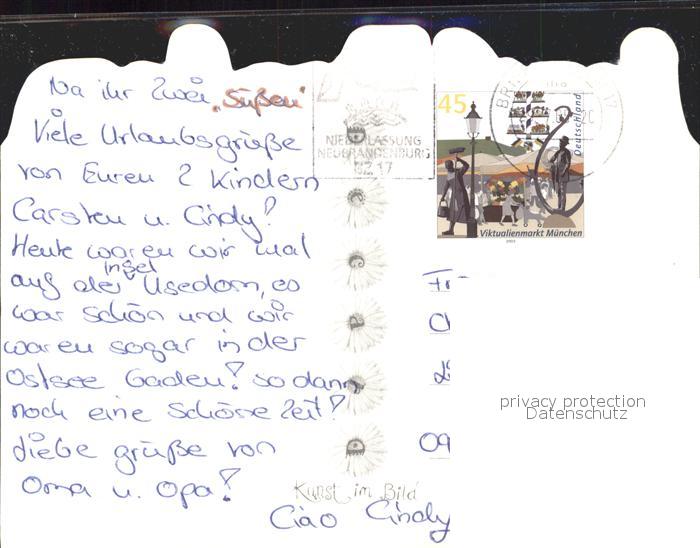 Na ihr Zwei „Süßen"
Viele Urlaubsgrüße
von Euren 2 Kindern
Carsten u. Cindy!
Heute waren wir mal
auf der Insel Usedom, es
war schön und wir
waren sogar in der
Ostsee Baden! so dann
noch eine schöne Zeit!
Liebe grüße von
Oma u. Opa!
Ciao Cindy
Kunst im Bild
NIEDERLASSUNG
NEUBRANDENBURG
17
45
Deutschland
Viktualienmarkt München
2003
Fr
09
privacy protection
Datenschutz